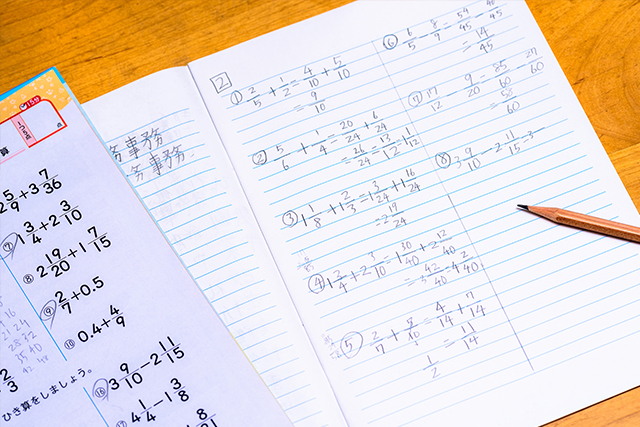 15分
算
2 5/9 + 3 7/36
⑦ 1 3/4 + 2 3/10
⑧ 2 19/20 + 1 7/15
⑨ 2/7 + 0.5
⑩ 0.4 + 4/9
ひき算をしましょう。
⑯ 3 9/10 - 2 11/15
⑰ 4 1/4 - 1 3/8
務事務
務事務
2
① 2/5 + 1/2 = 4/10 + 5/10
= 9/10
② 5/6 + 1/4 = 20/24 + 6/24
= 26/24 = 13/12 = 1 1/12
③ 1 1/8 + 1 2/3 = 1 3/24 + 1 16/24
= 2 19/24
④ 1 3/4 + 2 3/10 = 1 30/40 + 2 12/40
3 42/40 = 4 2/40
⑤ 2/7 + 5/10 = 4/14 + 7/14
= 11/14
1/2
⑥ 6/5 - 8/9 = 54/45 - 40/45
= 14/45
⑦ 17/12 - 9/20 = 85/60 - 27/60
= 58/60
⑧ 3 9/10 - 2 11/15 = 3